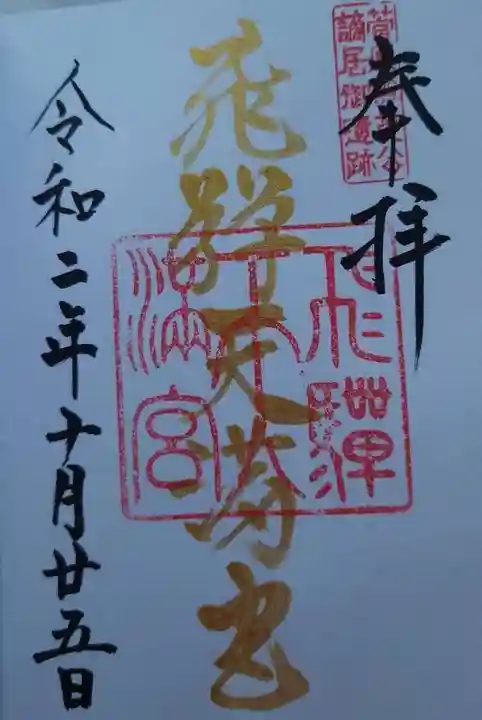 奉拝
飛騨天満宮
飛騨天満宮
謫居御遺跡
令和二年十月廿五日